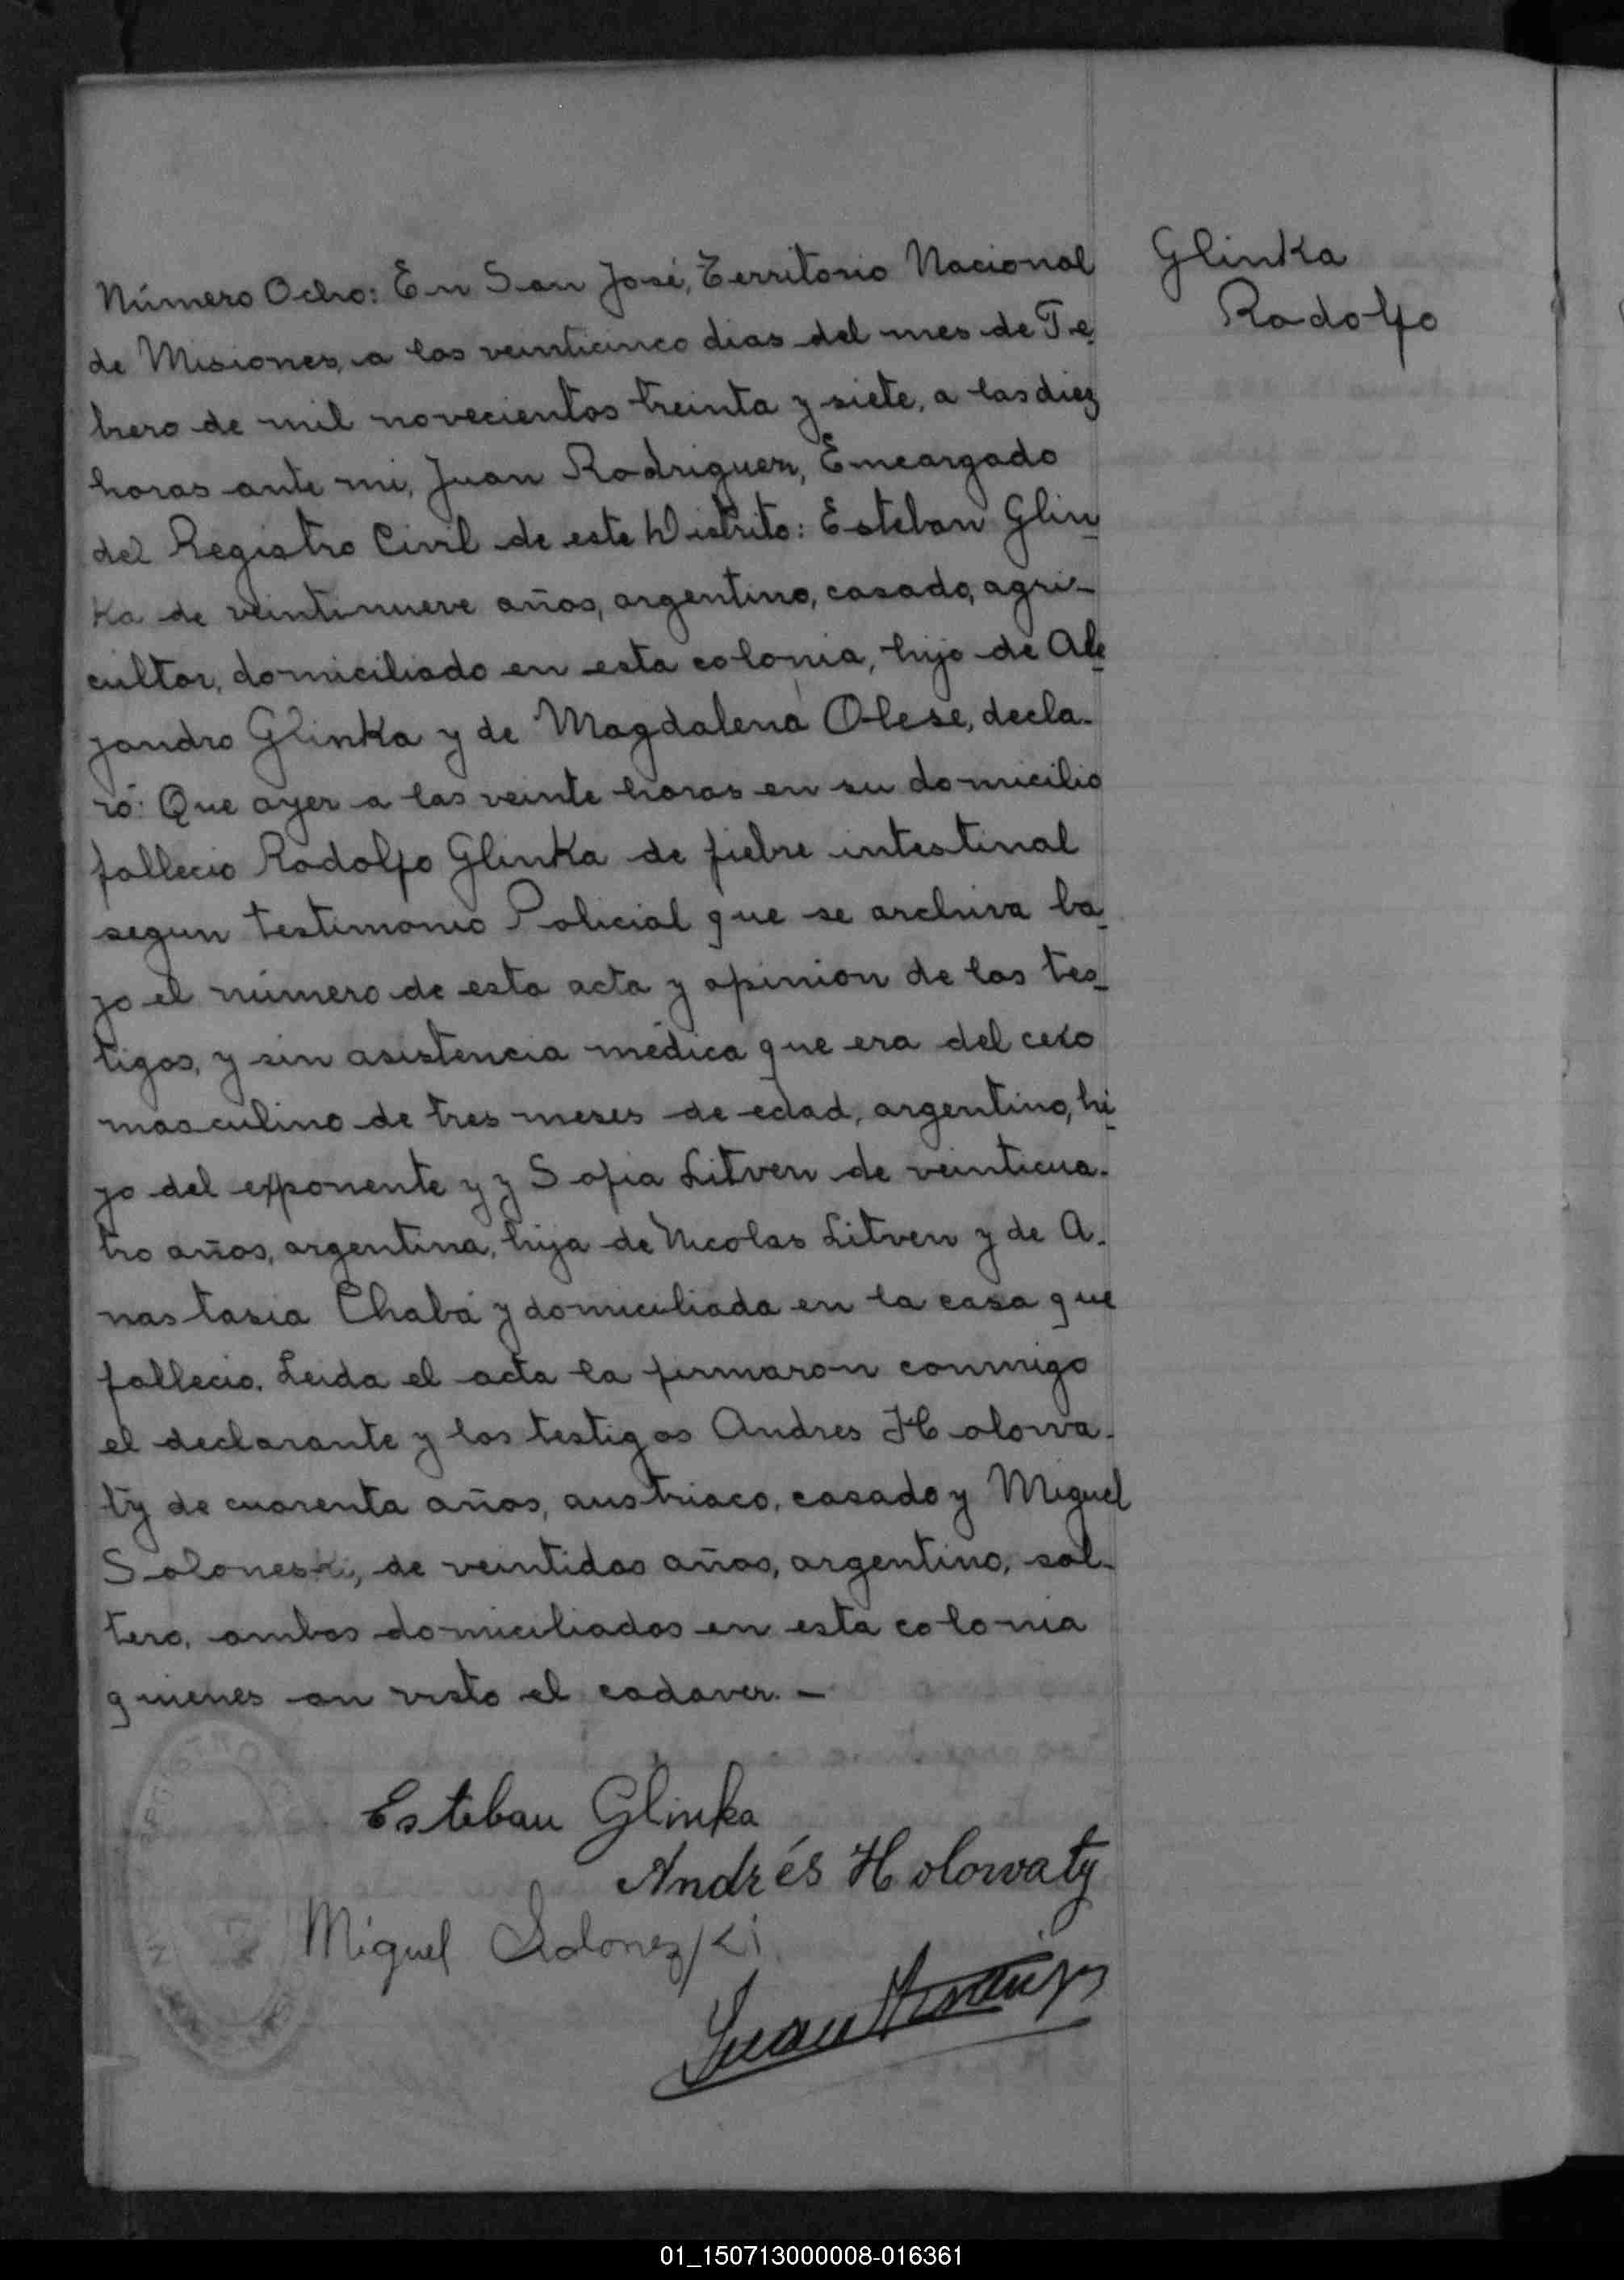 Glinka
Rodolfo
Número Ocho: En San José, Territorio Nacional
de Misiones, a los veinticinco dias del mes de Fe
brero de mil novecientos treinta y siete, a las diez
horas ante mi, Juan Rodriguez, Encargado
del Registro Civil de este Distrito: Esteban Glin
ka de veintinueve años, argentino, casado, agri-
cultor, domiciliado en esta colonia, hijo de Ale
jandro Glinka y de Magdalena Olese, decla-
ró: Que ayer a las veinte horas en su domicilio
fallecio Rodolfo Glinka de fiebre intestinal
segun testimonio Policial que se archiva ba
jo el número de esta acta y opinion de los tes
tigos, y sin asistencia médica que era del cexo
masculino de tres meses de edad, argentino, hi
jo del exponente y y Sofia Litven de veinticua-
tro años, argentina, hija de Nicolas Litven y de A-
nastasia Chabá y domiciliada en la casa que
fallecio. Leida el acta la firmaron conmigo
el declarante y los testigos Andres Holowa-
ty de cuarenta años, austriaco, casado y Miguel
Soloneski, de veintidos años, argentino, sol-
tero, ambos domiciliados en esta colonia
quienes an visto el cadaver. -
Esteban Glinka
Andrés Holowaty
Miguel Solonezki
Juan
01_150713000008-016361